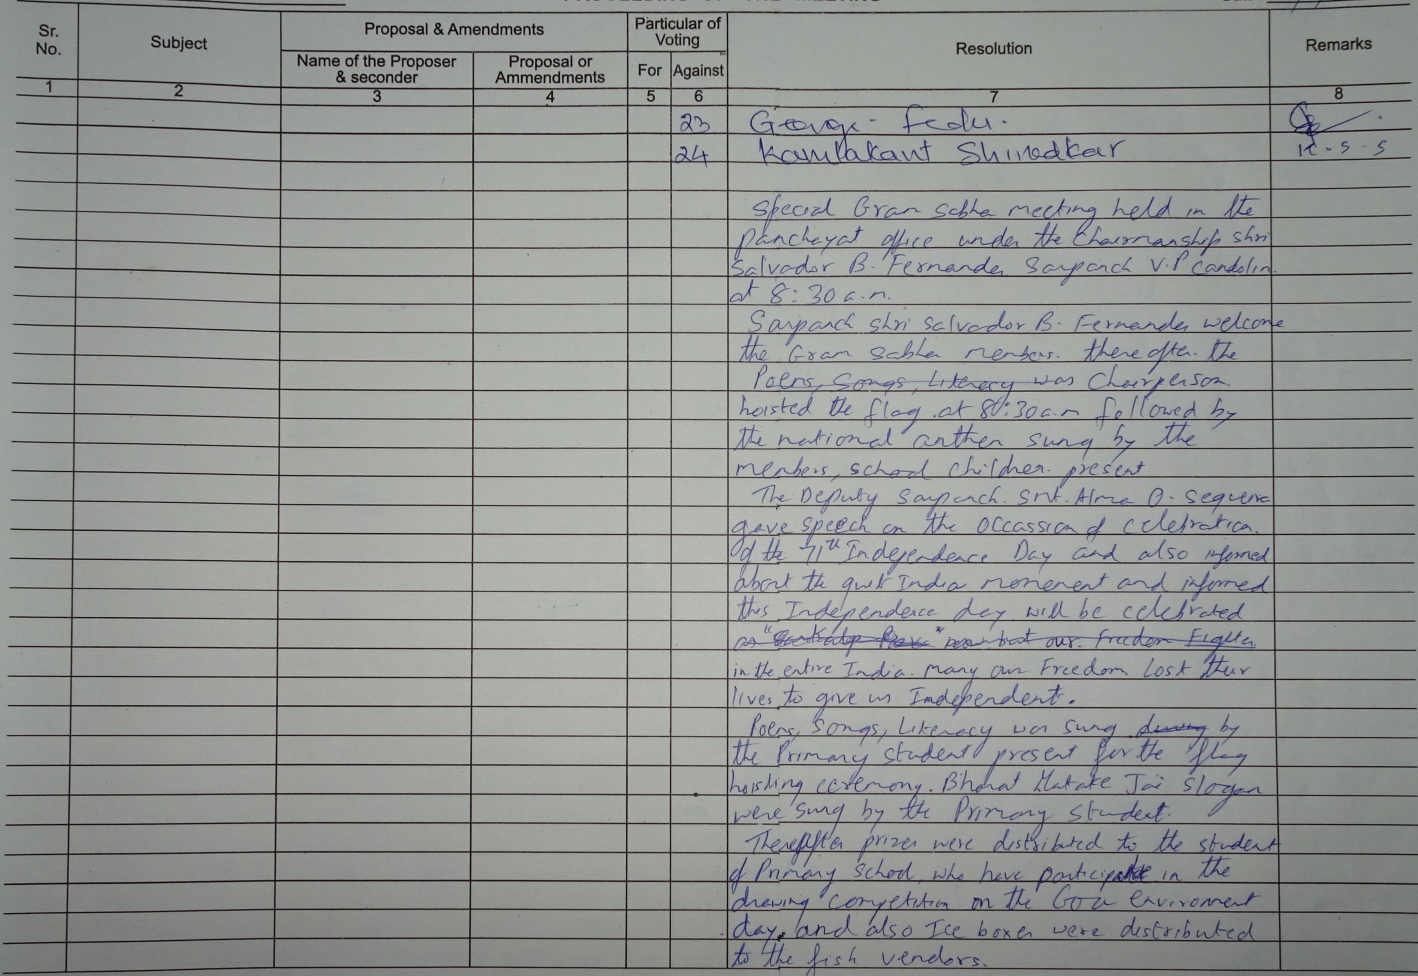 PROCEEDING OF THE MEETING
Sr. No.
Subject
Proposal & Amendments
Particular of Voting
Resolution
Remarks
Name of the Proposer & seconder
Proposal or Ammendments
For
Against
1 2 3 4 5 6 7 8
23 George
24 Kamlakant Shirodkar K.S.S
Special Gram Sabha meeting held in the
panchayat office under the Chairmanship shri
Salvador B. Fernandes Sarpanch V.P Candolim
at 8:30 a.m.
Sarpanch shri Salvador B. Fernandes welcome
the Gram Sabha members. thereafter the
Poems, Songs, Literacy was Chairperson
hoisted the flag at 8:30 a.m followed by
the national anthem sung by the
members, school children present
The Deputy Sarpanch. Smt. Alma O. Sequeira
gave speech on the occassion of celebration
of the 71th Independence Day and also informed
about the quit India movement and informed
this Independence day will be celebrated
as our Freedom Fighter
in the entire India. Many our Freedom Lost their
lives to give us Independent.
Poems, Songs, Literacy was sung by
the Primary student present for the flag
hoisting ceremony. Bharat Matake Jai slogan
were sung by the Primary student.
Thereafter prizes were distributed to the student
of Primary School, who have participate in the
drawing competition on the Goa environment
day, and also Ice boxes were distributed
to the fish vendors.